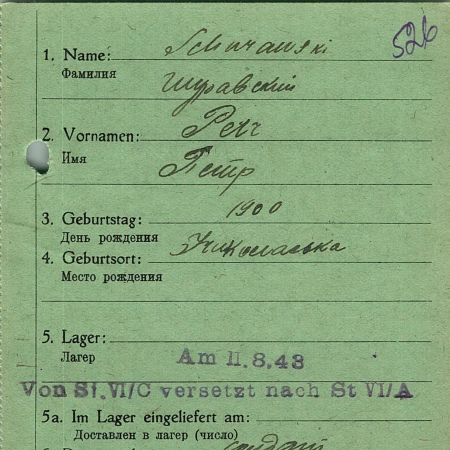 526
1. Name: Schurawski
Фамилия Шуравский
2. Vornamen: Petr
Имя Петр
3. Geburtstag: 1900
День рождения
4. Geburtsort:
Место рождения
5. Lager:
Лагер
Am 11.8.43
Von St. VI/C versetzt nach St VI/A
5a. Im Lager eingeliefert am:
Доставлен в лагер (число)